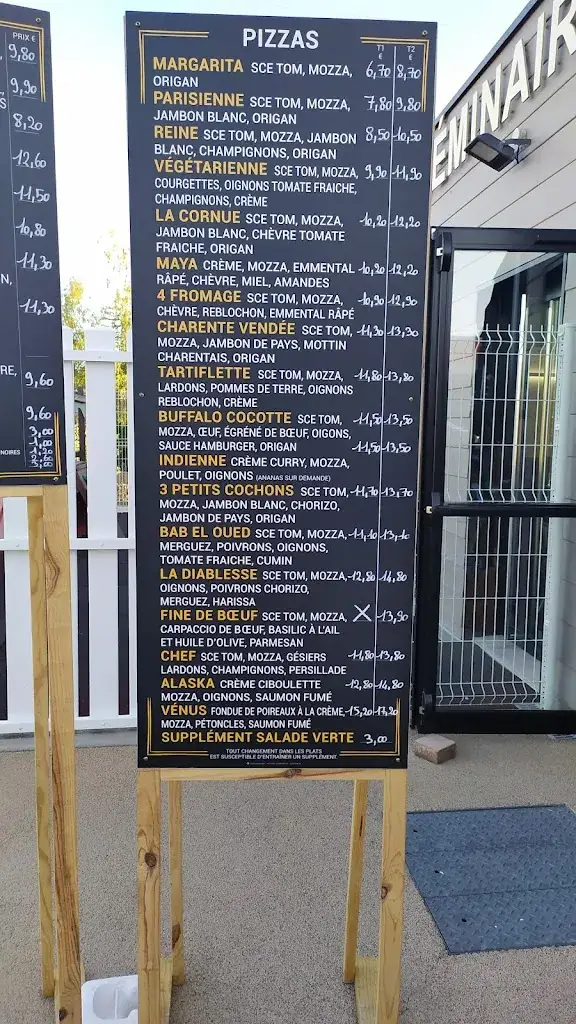 PRIX €
9,80
9,90
8,20
12,60
11,50
10,80
11,30
11,30
9,60
9,60
3,00
PIZZAS
T1 T2
€ €
MARGARITA SCE TOM, MOZZA, 6,70 8,70
ORIGAN
PARISIENNE SCE TOM, MOZZA, 7,80 9,80
JAMBON BLANC, ORIGAN
REINE SCE TOM, MOZZA, JAMBON 8,50 10,50
BLANC, CHAMPIGNONS, ORIGAN
VÉGÉTARIENNE SCE TOM, MOZZA, 9,90 11,90
COURGETTES, OIGNONS TOMATE FRAICHE,
CHAMPIGNONS, CRÈME
LA CORNUE SCE TOM, MOZZA, 10,20 12,20
JAMBON BLANC, CHÈVRE TOMATE
FRAICHE, ORIGAN
MAYA CRÈME, MOZZA, EMMENTAL 10,20 12,20
RÂPÉ, CHÈVRE, MIEL, AMANDES
4 FROMAGE SCE TOM, MOZZA, 10,90 12,90
CHÈVRE, REBLOCHON, EMMENTAL RÂPÉ
CHARENTE VENDÉE SCE TOM, 11,30 13,30
MOZZA, JAMBON DE PAYS, MOTTIN
CHARENTAIS, ORIGAN
TARTIFLETTE SCE TOM, MOZZA, 11,80 13,80
LARDONS, POMMES DE TERRE, OIGNONS
REBLOCHON, CRÈME
BUFFALO COCOTTE SCE TOM, 11,50 13,50
MOZZA, ŒUF, ÉGRÉNÉ DE BŒUF, OIGONS,
SAUCE HAMBURGER, ORIGAN 11,50 13,50
INDIENNE CRÈME CURRY, MOZZA,
POULET, OIGNONS (ANANAS SUR DEMANDE)
3 PETITS COCHONS SCE TOM, 11,70 13,70
MOZZA, JAMBON BLANC, CHORIZO,
JAMBON DE PAYS, ORIGAN
BAB EL OUED SCE TOM, MOZZA, 11,10 13,10
MERGUEZ, POIVRONS, OIGNONS,
TOMATE FRAICHE, CUMIN
LA DIABLESSE SCE TOM, MOZZA, 12,80 14,80
OIGNONS, POIVRONS CHORIZO,
MERGUEZ, HARISSA
FINE DE BŒUF SCE TOM, MOZZA, X 13,90
CARPACCIO DE BŒUF, BASILIC À L'AIL
ET HUILE D'OLIVE, PARMESAN
CHEF SCE TOM, MOZZA, GÉSIERS 11,80 13,80
LARDONS, CHAMPIGNONS, PERSILLADE
ALASKA CRÈME CIBOULETTE 12,80 14,80
MOZZA, OIGNONS, SAUMON FUMÉ
VÉNUS FONDUE DE POIREAUX À LA CRÈME, 15,20 17,20
MOZZA, PÉTONCLES, SAUMON FUMÉ
SUPPLÉMENT SALADE VERTE 3,00
TOUT CHANGEMENT DANS LES PLATS
EST SUSCEPTIBLE D'ENTRAÎNER UN SUPPLÉMENT.
ÉMINAIR